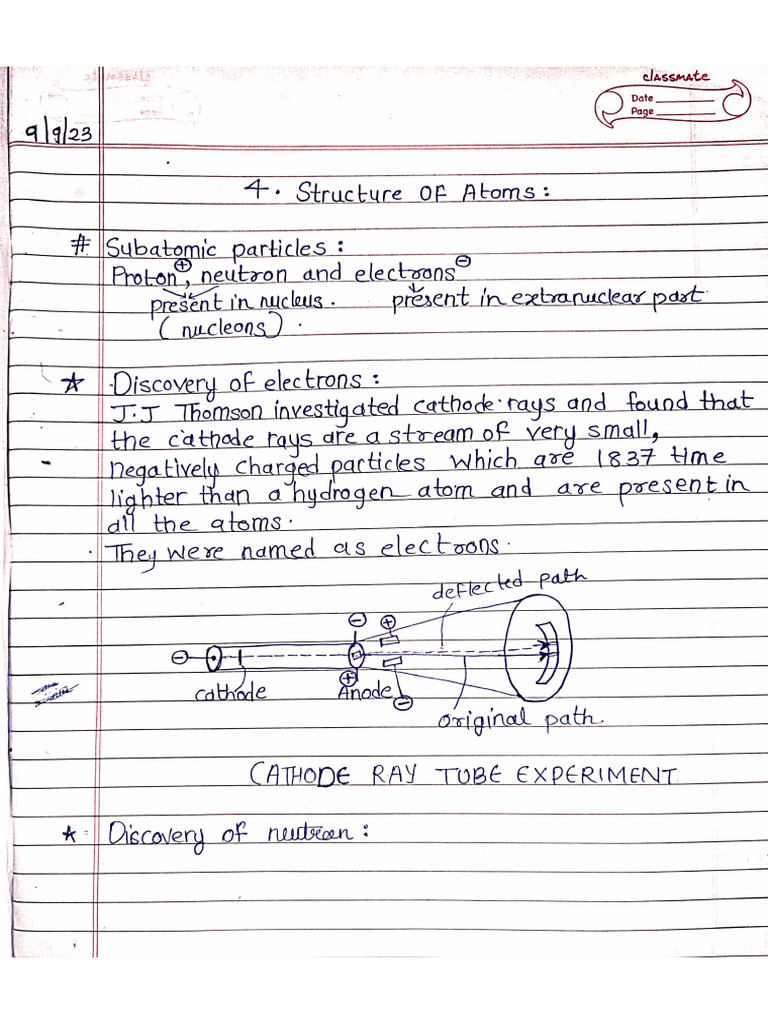 classmate
Date
Page
9/9/23
4. Structure OF Atoms:
# Subatomic particles:
Proton⊕, neutron and electrons⊖
present in nucleus. present in extranuclear part
(nucleons).
★ Discovery of electrons:
J.J Thomson investigated cathode rays and found that
the cathode rays are a stream of very small,
negatively charged particles which are 1837 time
lighter than a hydrogen atom and are present in
all the atoms.
They were named as electrons.
deflected path
⊖ ⊕
⊖
cathode Anode ⊕ ⊖
original path.
CATHODE RAY TUBE EXPERIMENT
★ Discovery of neutron: